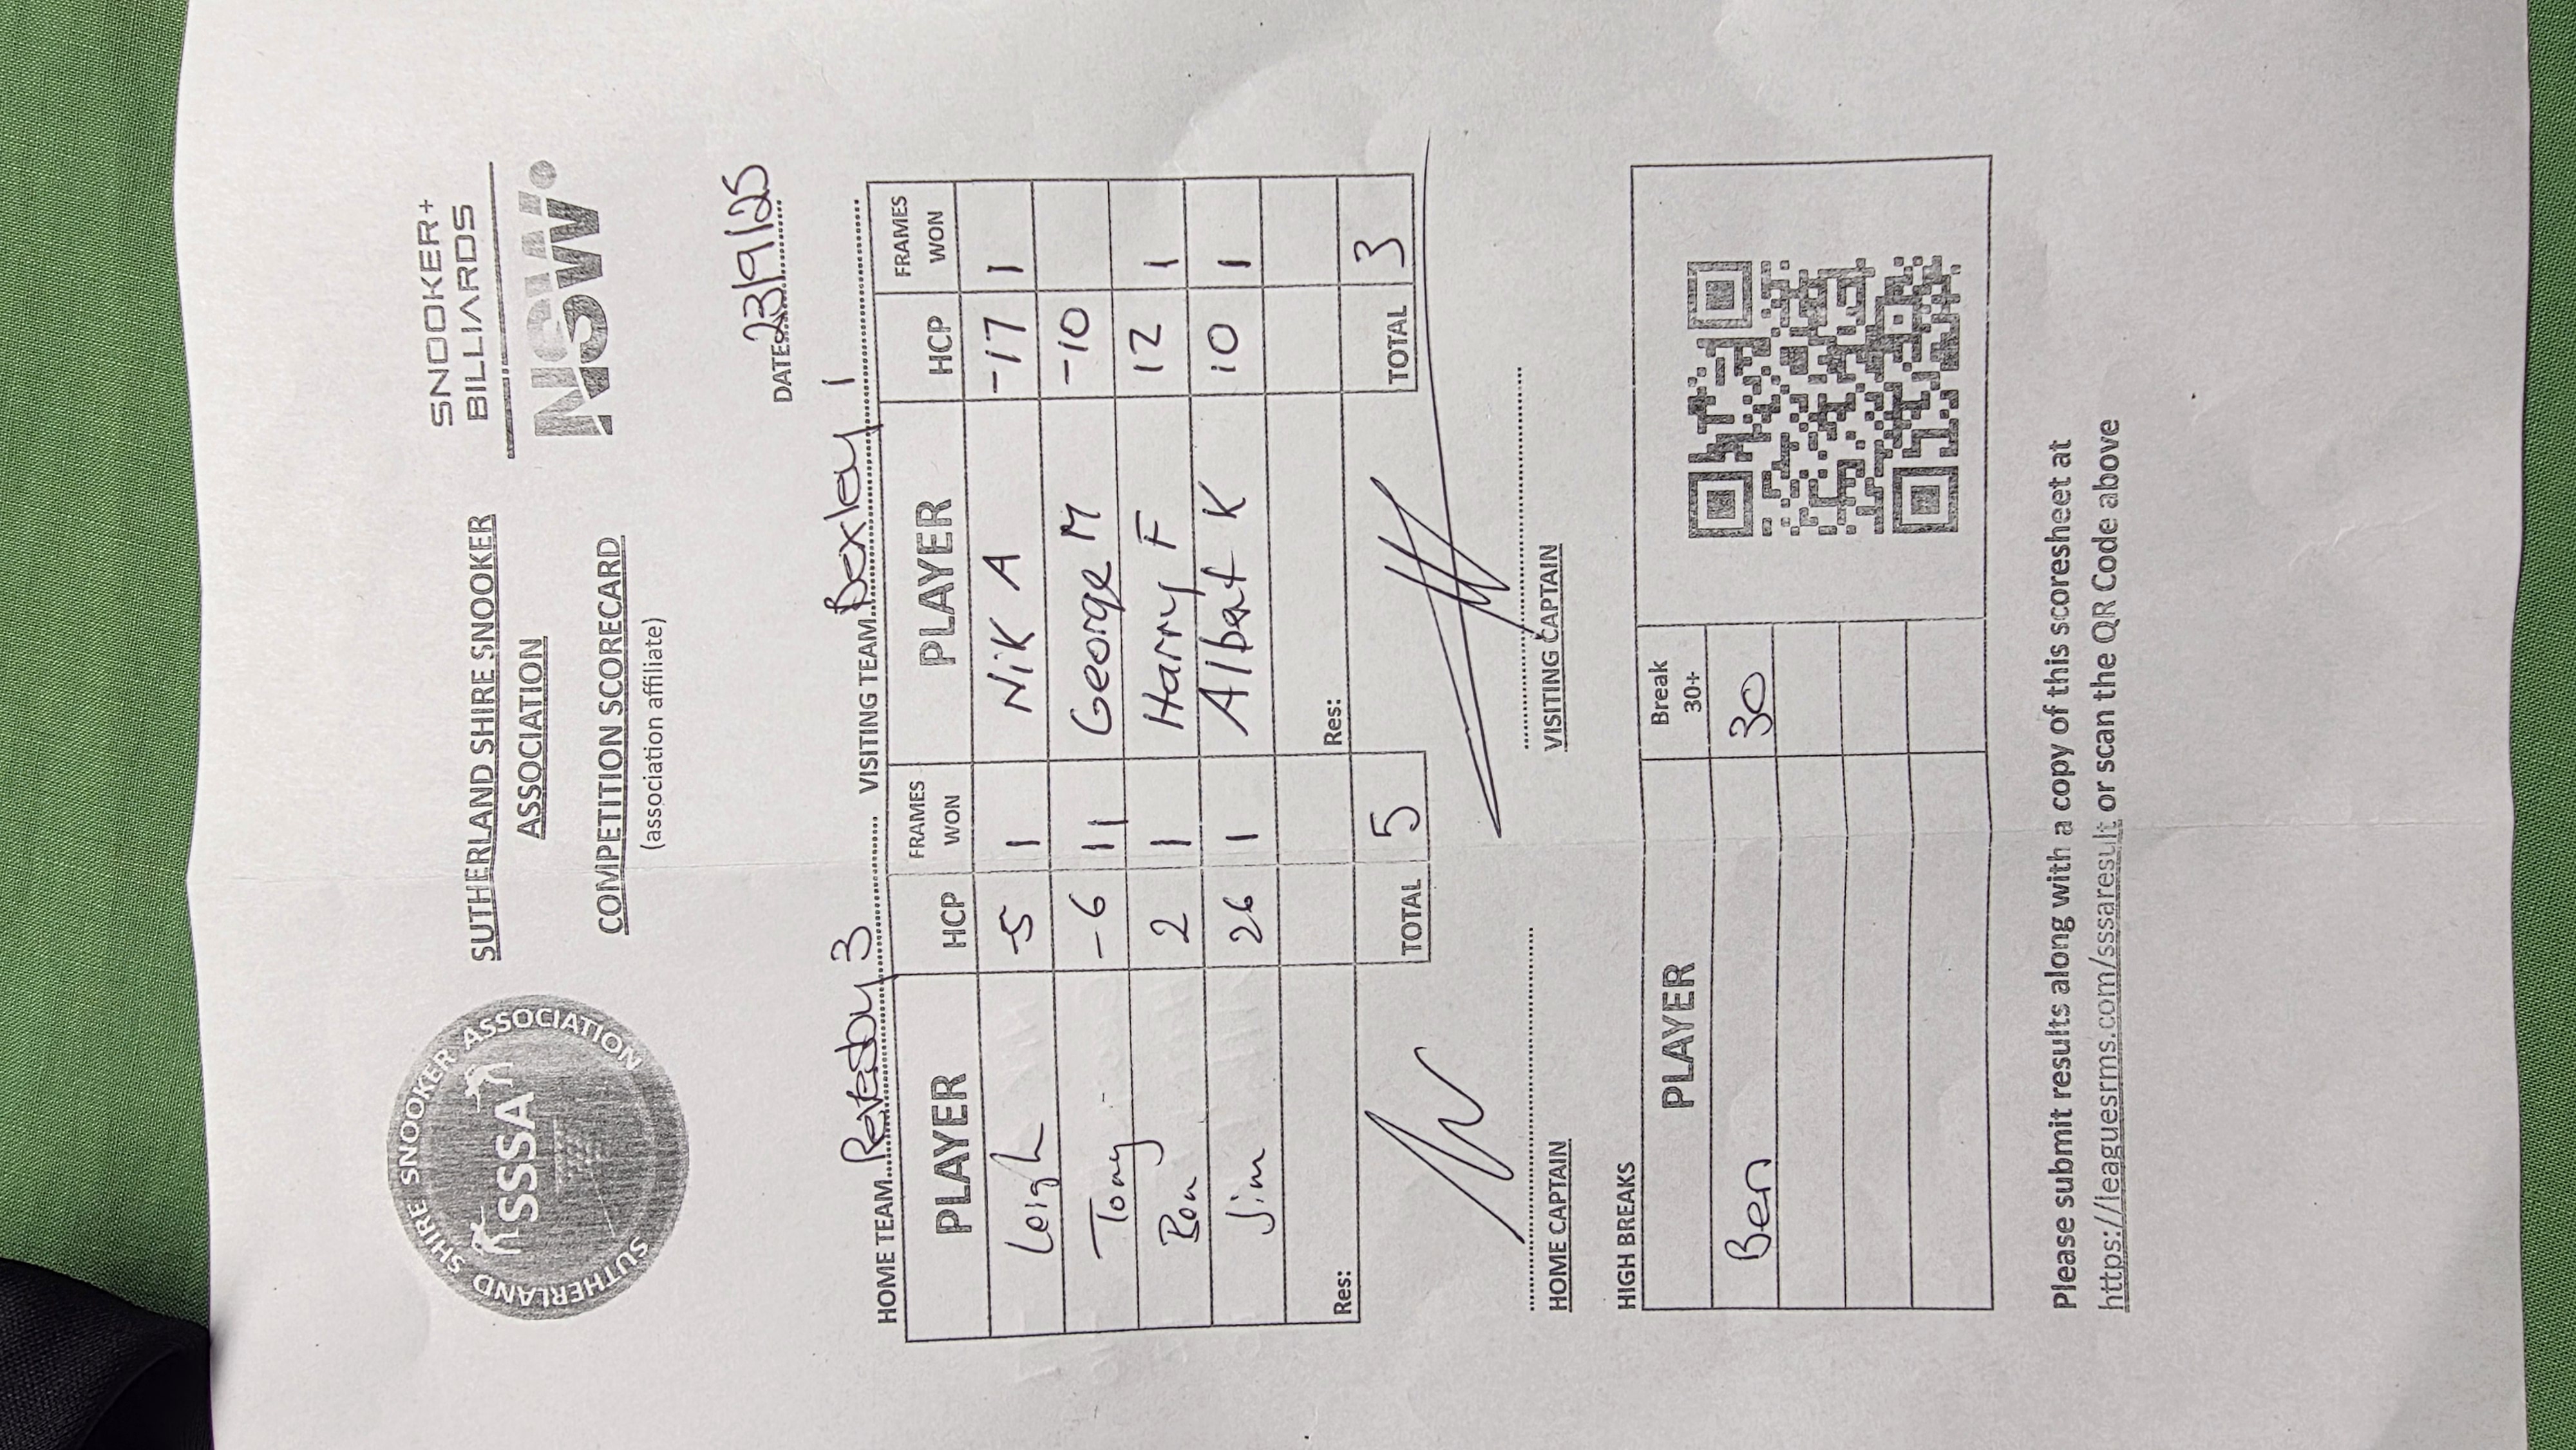 SUTHERLAND SHIRE SNOOKER ASSOCIATION
SSSA
SUTHERLAND SHIRE SNOOKER
ASSOCIATION
COMPETITION SCORECARD
(association affiliate)
SNOOKER+
BILLIARDS
NSW
DATE 23/9/25
HOME TEAM Revesby 3 VISITING TEAM Bexley 1
PLAYER HCP FRAMES WON PLAYER HCP FRAMES WON
Leigh -5 1 Nik A -17 1
Tony -6 11 George M -10
Ben 2 1 Harry F 12 1
Jim 26 1 Albert K 10 1
Res: Res:
TOTAL 5 TOTAL 3
HOME CAPTAIN VISITING CAPTAIN
HIGH BREAKS
PLAYER Break 30+
Ben 30
Please submit results along with a copy of this scoresheet at
https://leaguesrms.com/sssaresult or scan the QR Code above